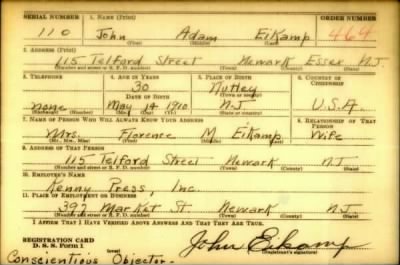 SERIAL NUMBER 1. NAME (Print) ORDER NUMBER
110 John Adam Eikamp 464
(First) (Middle) (Last)
2. ADDRESS (Print)
115 Telford Street Newark Essex N.J.
(Number and street or R. F. D. number) (Town) (County) (State)
3. TELEPHONE 4. AGE IN YEARS 5. PLACE OF BIRTH 6. COUNTRY OF CITIZENSHIP
30 Nutley
DATE OF BIRTH (Town or county)
none May 14 1910 N.J. U.S.A.
(Exchange) (Number) (Mo.) (Day) (Yr.) (State or country)
7. NAME OF PERSON WHO WILL ALWAYS KNOW YOUR ADDRESS 8. RELATIONSHIP OF THAT PERSON
Mrs. Florence M Eikamp Wife
(Mr., Mrs., Miss) (First) (Middle) (Last)
9. ADDRESS OF THAT PERSON
115 Telford Street Newark NJ
(Number and street or R. F. D. number) (Town) (County) (State)
10. EMPLOYER'S NAME
Kenny Press, Inc.
11. PLACE OF EMPLOYMENT OR BUSINESS
Market St. Newark NJ
(Number and street or R. F. D. number) (Town) (County) (State)
I AFFIRM THAT I HAVE VERIFIED ABOVE ANSWERS AND THAT THEY ARE TRUE.
REGISTRATION CARD
D. S. S. Form 1 John Eikamp
(Registrant's signature)
Conscientious Objector